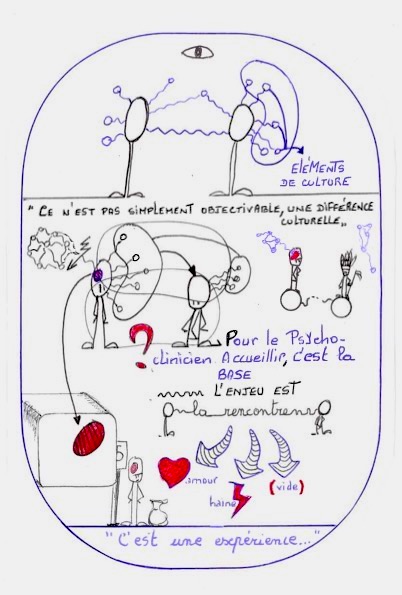 ELÉMENTS
DE CULTURE
"CE N'EST PAS SIMPLEMENT OBJECTIVABLE, UNE DIFFÉRENCE
CULTURELLE„
?
Pour le Psycho-
clinicien Accueillir, c'est la
BASE
L'ENJEU EST
la rencontre
amour
haine
(vide)
"C'est une expérience..."